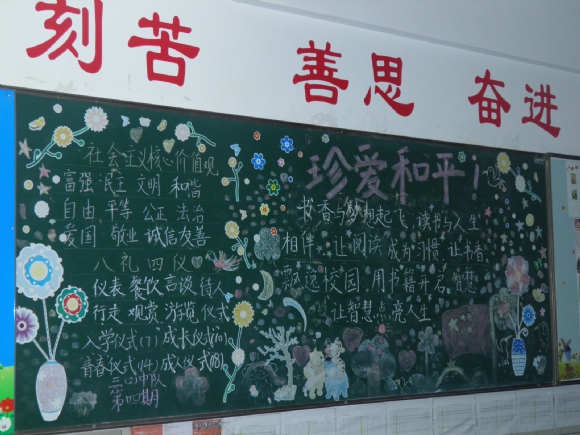 刻苦 善思 奋进
社会主义核心价值观
富强 民主 文明 和谐
自由 平等 公正 法治
爱国 敬业 诚信友善
八礼四仪
仪表 餐饮 言谈 待人
行走 观赏 游览 仪式
入学仪式(7) 成长仪式(10)
青春仪式(14) 成人仪式(18)
中队
第四期
珍爱和平!
书香与梦想起飞,读书与人生
相伴,让阅读成为习惯,让书香
飘逸校园,用书籍开启智慧
让智慧点亮人生